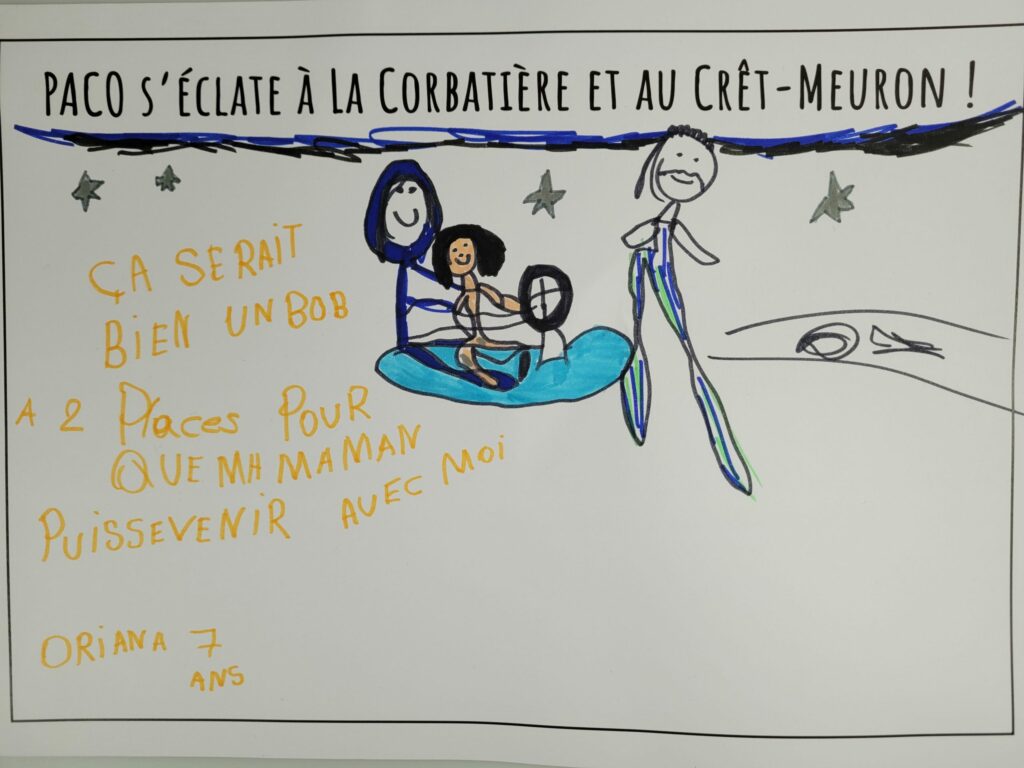 PACO s'ÉCLATE À LA CORBATIÈRE ET AU CRÊT-MEURON !
ÇA SERAIT
BIEN UN BOB
A 2 Places POUR
QUE MA MAMAN
PUISSEVENIR AVEC MOI
ORIANA 7
ANS